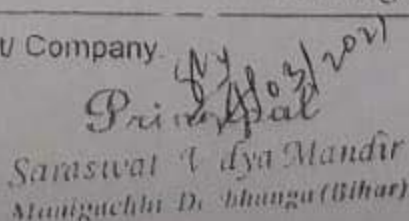 Company
03/2021
Principal
Saraswat Vidya Mandir
Manigachhi Darbhanga (Bihar)